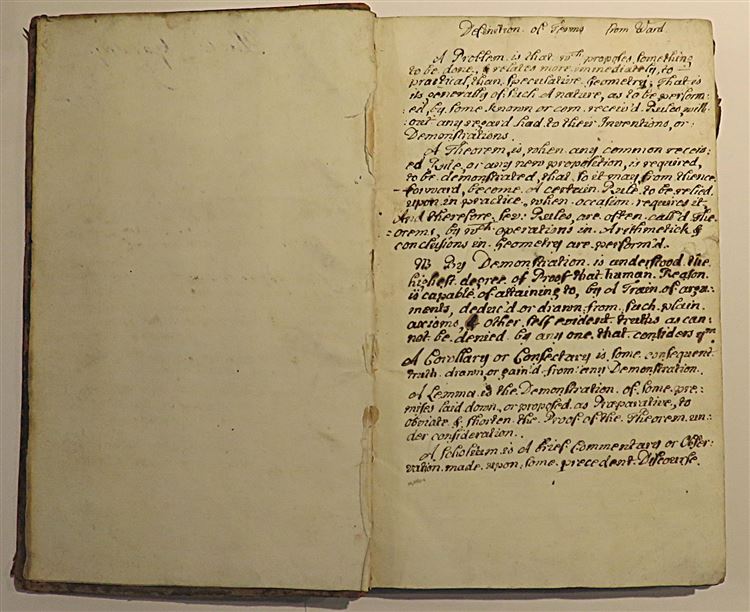 Definition of Terms from Ward
A Problem is that wch proposes something
to be done, & relates more immediately, to
practical, than speculative Geometry; That is
its generally of such A nature, as to be perform=
ed, by some known or com. receiv'd Rules, with=
out any regard had to their Inventions, or
Demonstrations.
A Theorem, is, when any common receiv=
ed Rule or any new proposition, is required,
to be demonstrated, that so it may from thence
forward, become A certain Rule to be relied
upon in practice, when occasion requires it,
And therefore sev: Rules, are often call'd The=
orems, by wch operations in Arithmetick &
conclusions in Geometry are perform'd.
By Demonstration is understood the
highest degree of Proof that human Reason
is capable of attaining to, by A Train of argu=
ments, deduc'd or drawn from such plain
axioms, & other self evident truths as can=
not be denied by any one that considers ym
A Corollary or Consectary is some consequent
truth drawn or gain'd from any Demonstration.
A Lemma is the Demonstration of some pre=
mises laid down, or proposed as Præparative, to
obviate & shorten the Proof of the Theorem un=
der consideration.
A Scholium is A brief Commentary or Obser=
vation made upon some precedent Discourse.